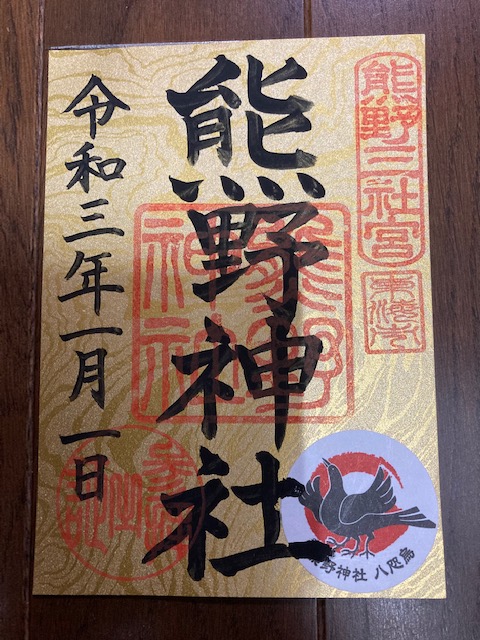 熊野三社宮
東海市
熊野神社
熊野神社
令和三年一月一日
熊野神社 八咫烏